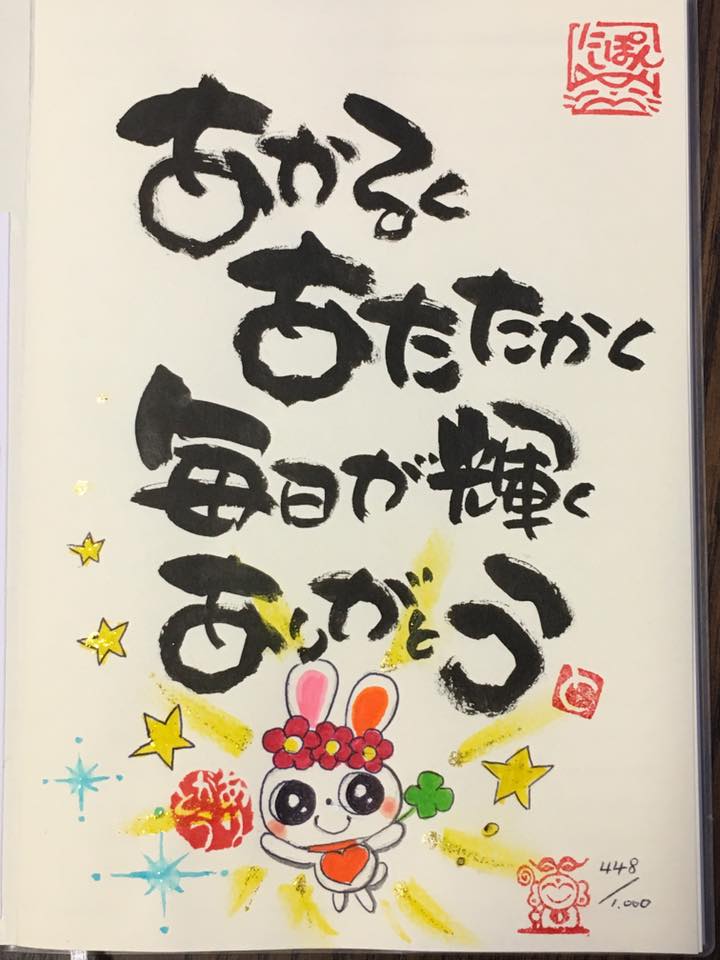 にしぽん
あかるく
あたたかく
毎日が輝く
ありがとう
448/1.000